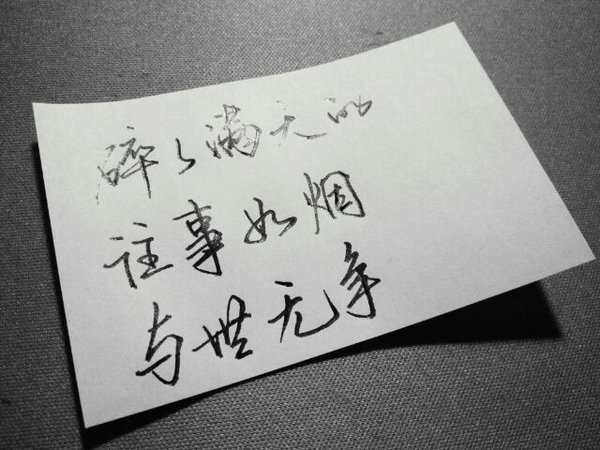 碎了满天的
往事如烟
与世无争